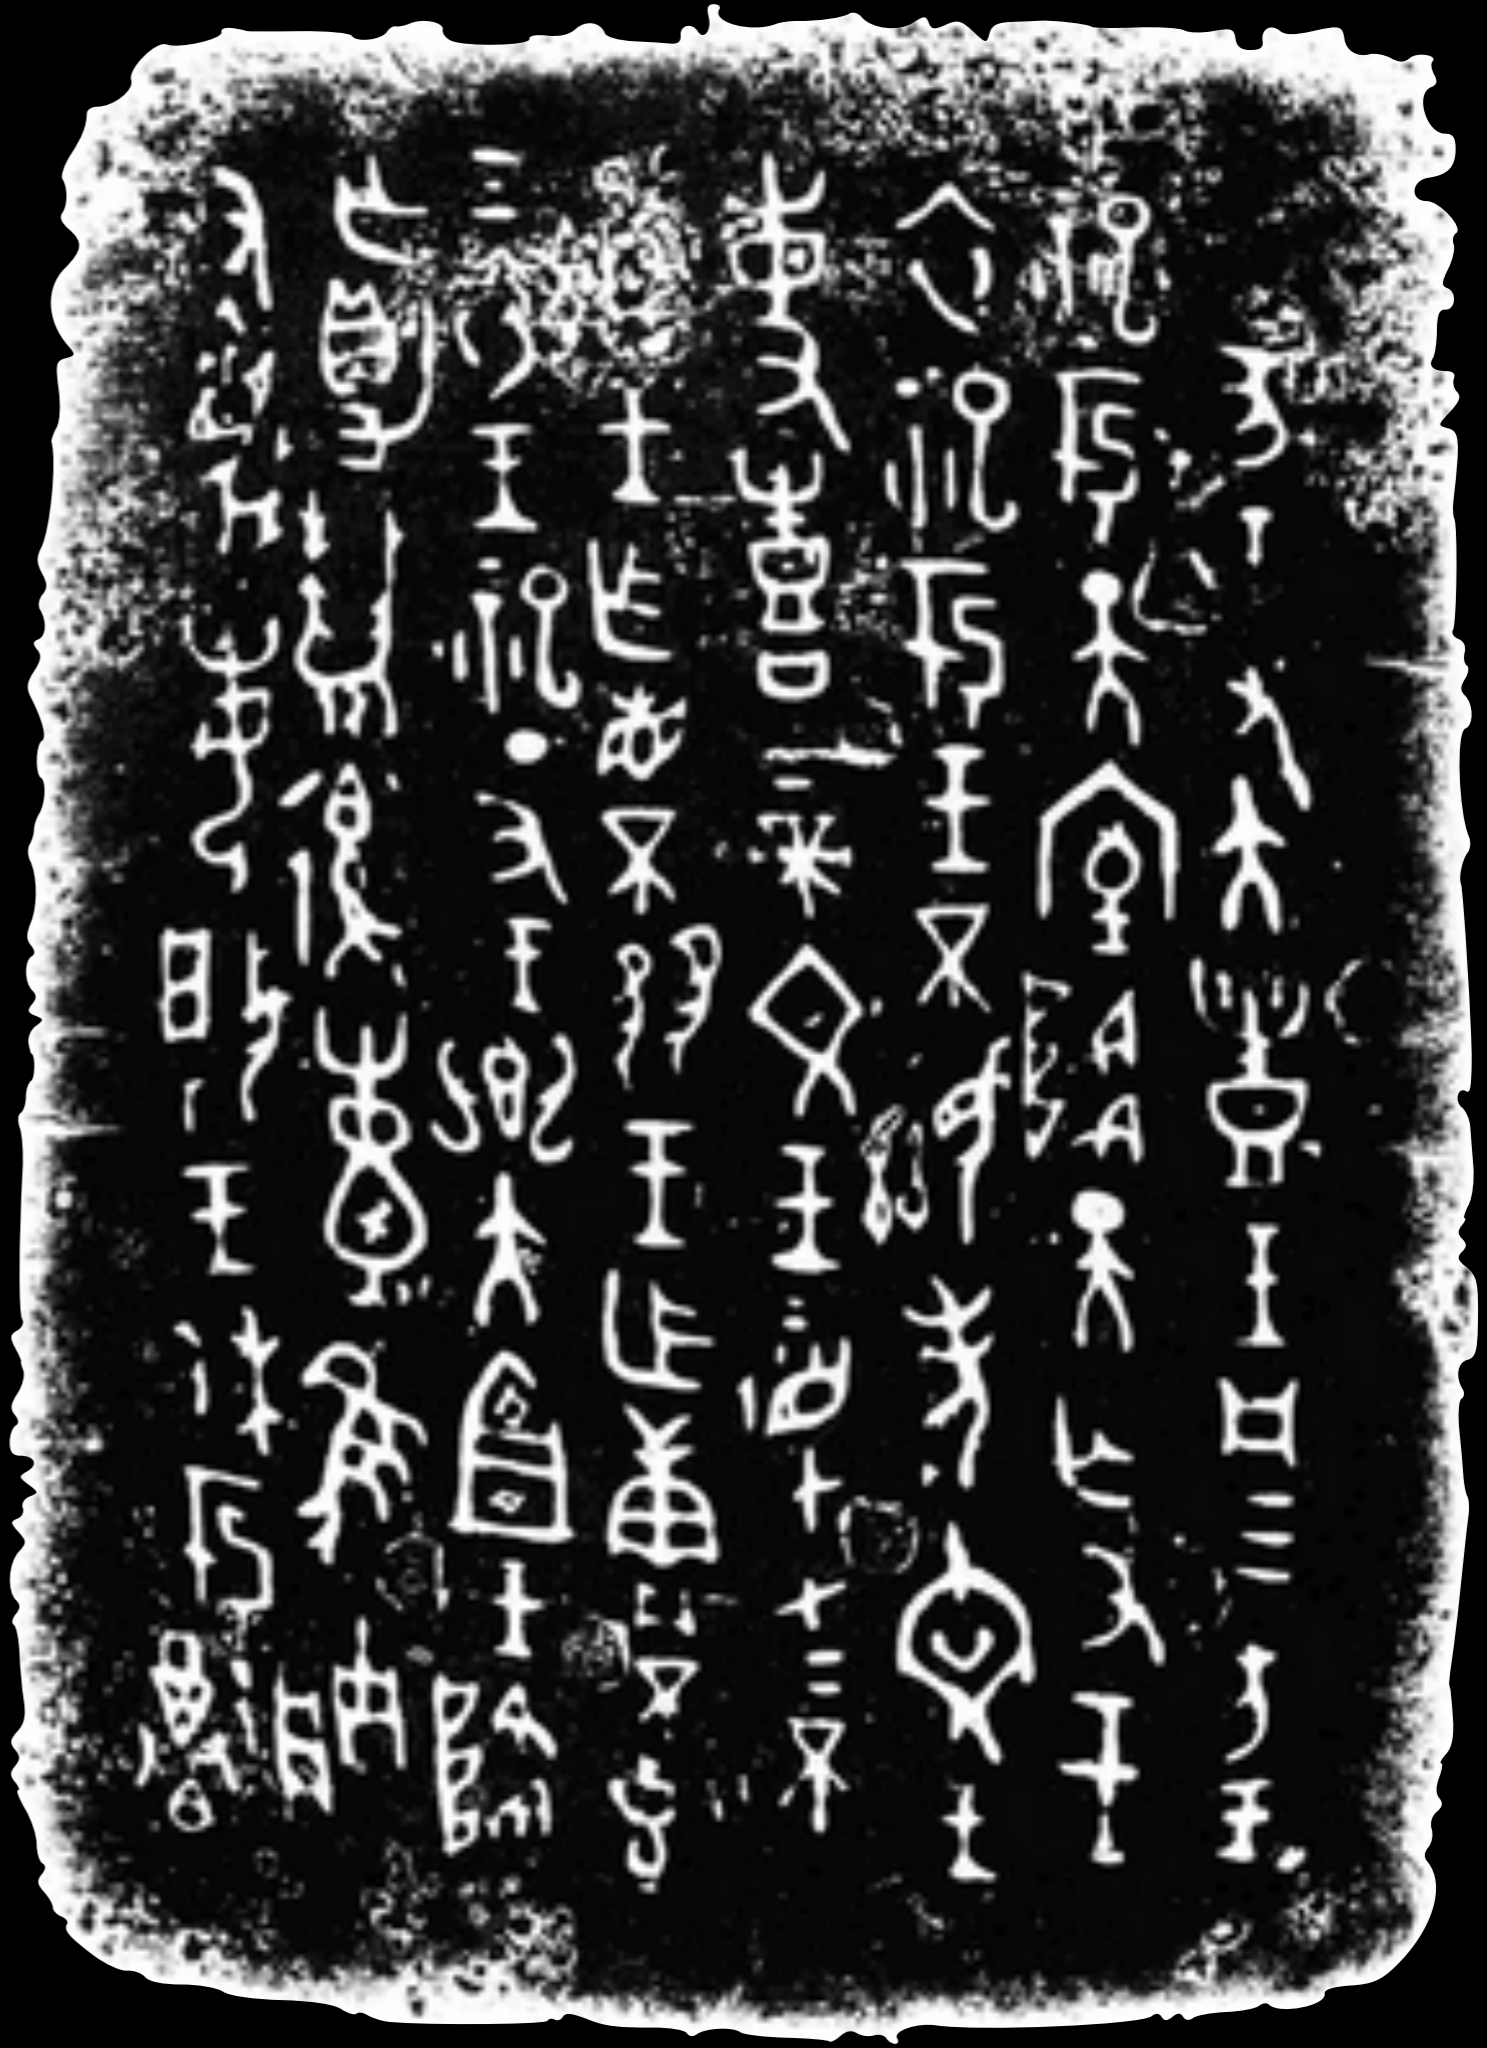 乙亥王又大豐王凡三方王
祀于天室降天亡又王
衣祀于王不顯考文王
事喜上帝文王監在上不
顯王乍省不王乍庸不克
乞衣王祀丁丑王鄉大宜王降
亡爵復隹朕
又蔑敏揚王休于尊